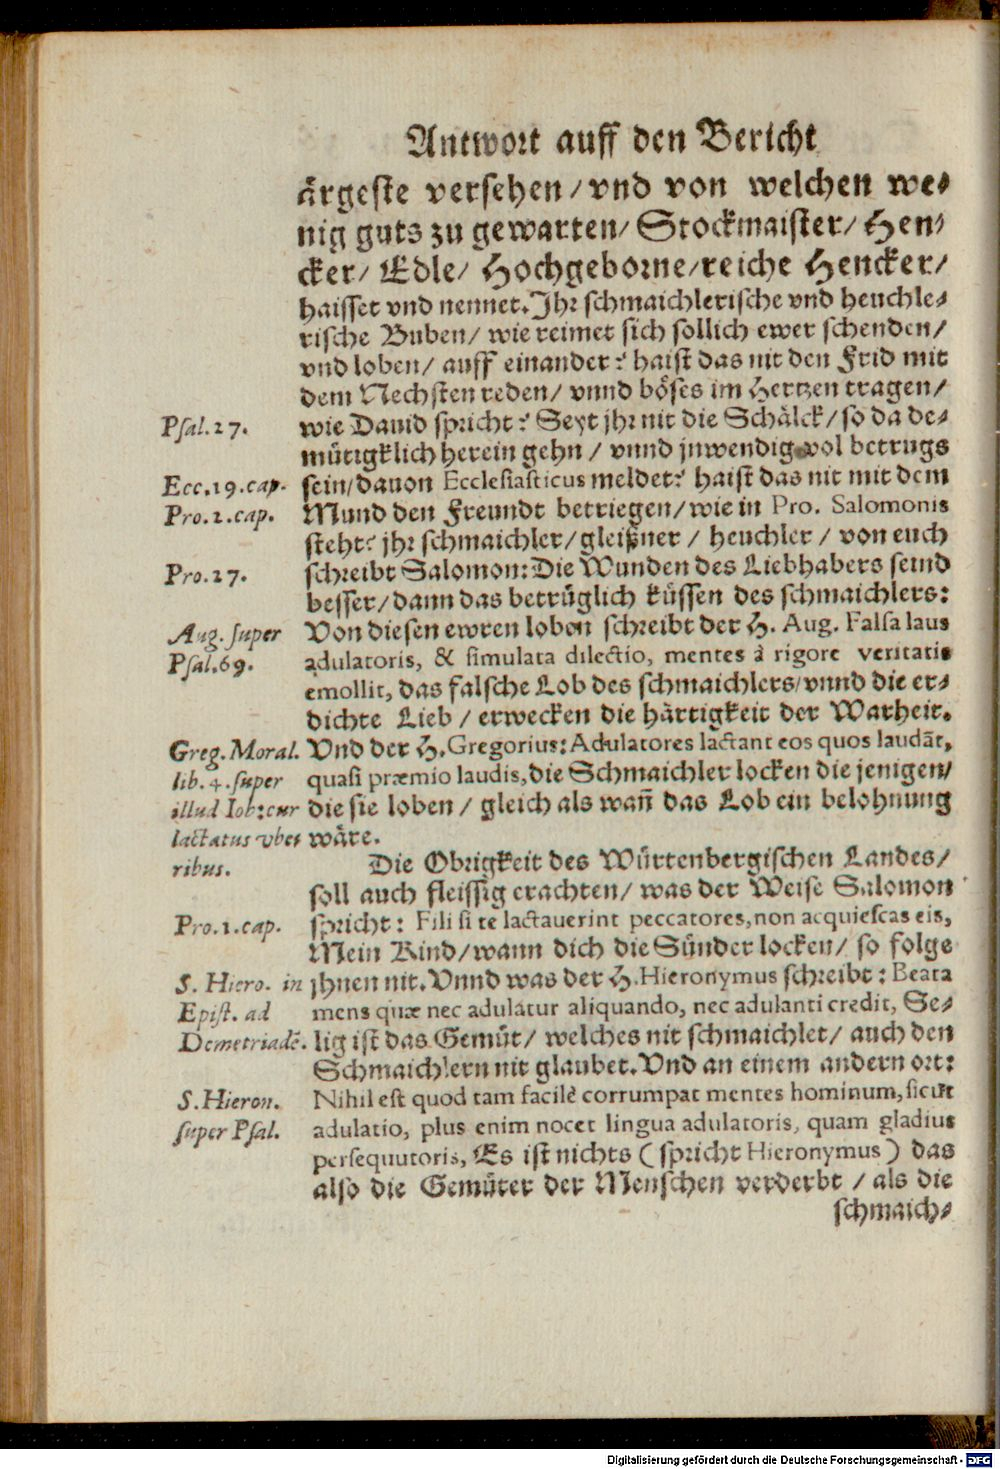 Antwort auff den Bericht
ärgeste versehen/ vnd von welchen we-
nig guts zu gewarten/ Stockmaister/ Hen-
cker/ Edle/ Hochgeborne/ reiche Hencker/
haisset vnd nennet. Jhr schmaichlerische vnd heuchle-
rische Buben/ wie reimet sich sollich ewer schenden/
vnd loben/ auff einander? haist das nit den Frid mit
dem Nechsten reden/ vnnd böses im Hertzen tragen/
Psal.27. wie Dauid spricht? Seyt jhr nit die Schälck/ so da de-
mütigklich herein gehn/ vnnd jnwendig vol betrugs
Ecc.19.cap. sein/ dauon Ecclesiasticus meldet? haist das nit mit dem
Pro.2.cap. Mund den Freundt betriegen/ wie in Pro. Salomonis
steht? jhr schmaichler/ gleißner/ heuchler/ von euch
Pro.27. schreibt Salomon: Die Wunden des Liebhabers seind
besser/ dann das betrüglich küssen des schmaichlers:
Aug. super Von diesen ewren loben schreibt der H. Aug. Falsa laus
Psal.69. adulatoris, & simulata dilectio, mentes à rigore veritatis
emollit, das falsche Lob des schmaichlers/ vnnd die er-
dichte Lieb/ erwecken die härtigkeit der Warheit.
Greg. Moral. Vnd der H. Gregorius: Adulatores lactant eos quos laudāt,
lib. 4. super quasi præmio laudis, die Schmaichler locken die jenigen/
illud Iob: cur die sie loben/ gleich als wañ das Lob ein belohnung
lactatus vbe- wäre.
ribus. Die Obrigkeit des Würtenbergischen Landes/
soll auch fleissig erachten/ was der Weise Salomon
Pro.1.cap. spricht: Fili si te lactauerint peccatores, non acquiescas eis,
Mein Kind/ wann dich die Sünder locken/ so folge
S. Hiero. in jhnen nit. Vnnd was der H. Hieronymus schreibt: Beata
Epist. ad mens quæ nec adulatur aliquando, nec adulanti credit, Se-
Demetriadē. lig ist das Gemüt/ welches nit schmaichlet/ auch den
Schmaichlern nit glaubet. Vnd an einem andern ort:
S. Hieron. Nihil est quod tam facilè corrumpat mentes hominum, sicut
super Psal. adulatio, plus enim nocet lingua adulatoris, quam gladius
persequutoris, Es ist nichts (spricht Hieronymus) das
also die Gemüter der Menschen verderbt/ als die
schmaich-
Digitalisierung gefördert durch die Deutsche Forschungsgemeinschaft - DFG